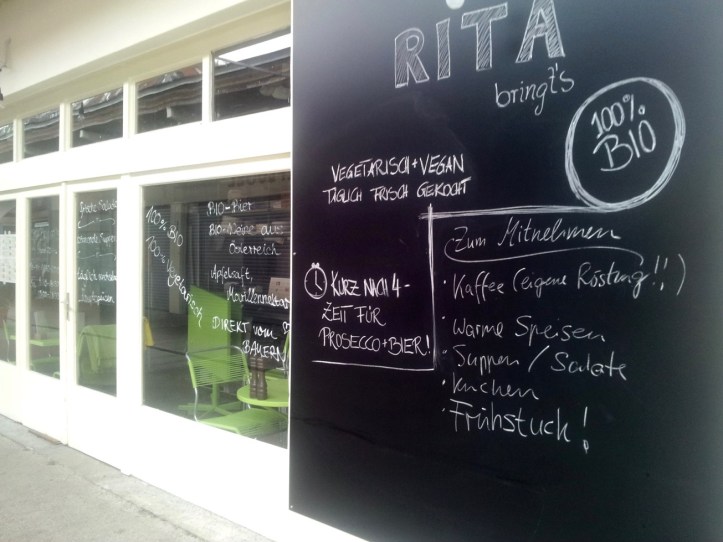 RITA
bringt's
100%
BIO
VEGETARISCH + VEGAN
TÄGLICH FRISCH GEKOCHT
KURZ NACH 4 -
ZEIT FÜR
PROSECCO + BIER!
Zum Mitnehmen
· Kaffee (eigene Röstung!!)
· Warme Speisen
· Suppen / Salate
· Kuchen
· Frühstuck!
100% BIO
100% Vegetarisch
BIO-Bier
BIO-Weine aus
Österreich
Apfelsaft,
DIREKT vom
BAUERN
frische Salate